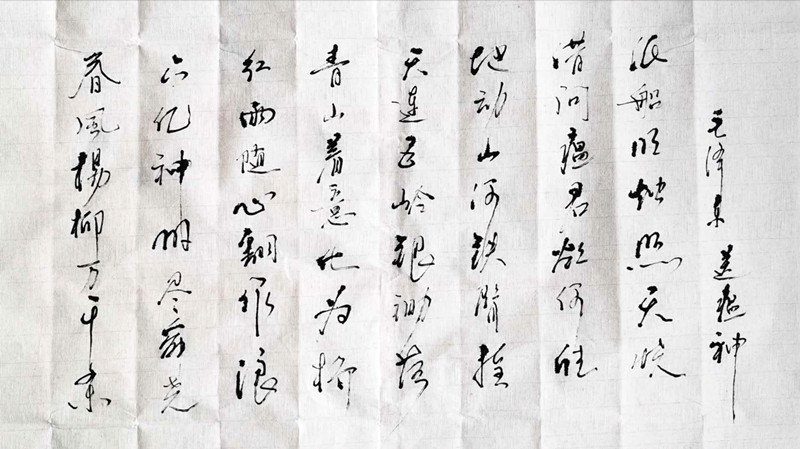 春風楊柳万千条
六亿神州尽舜尧
红雨随心翻作浪
青山着意化为桥
天連五岭银锄落
地动山河铁臂摇
借问瘟君欲何往
纸船明烛照天烧
毛泽东 送瘟神